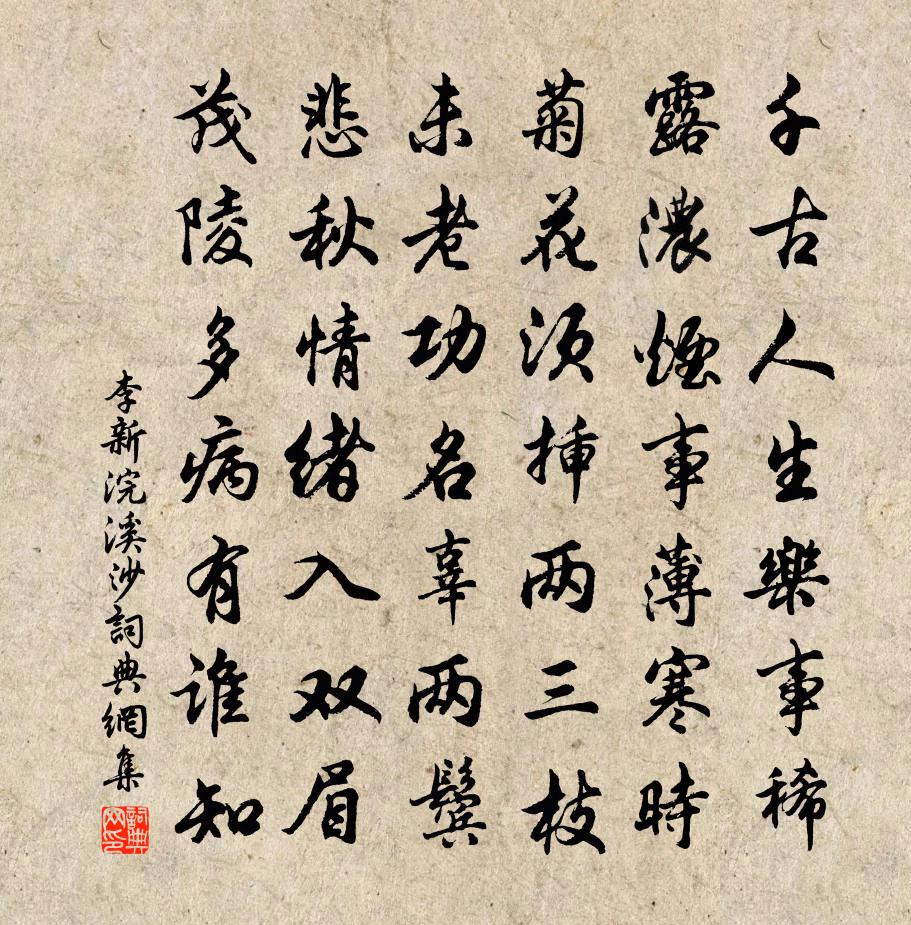 千古人生樂事稀
露濃煙事薄寒時
菊花須插两三枝
未老功名辜两鬢
悲秋情緒入双眉
茂陵多病有誰知
李新浣溪沙詞典網集
詞典网印